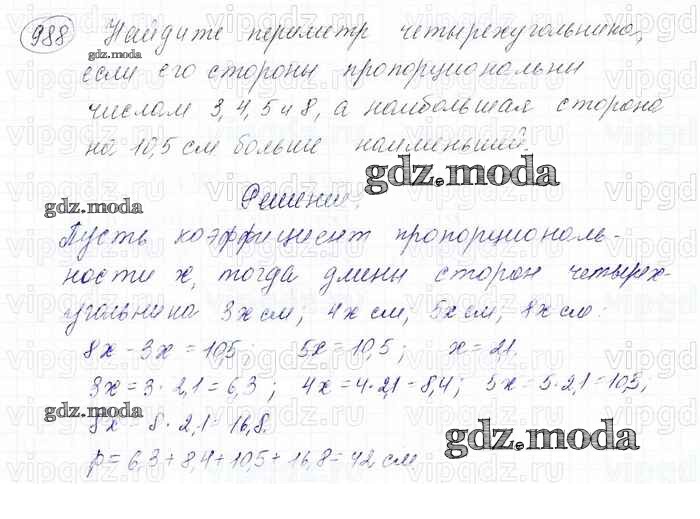 988 Найдите периметр четырехугольника,
если его стороны пропорциональны
числам 3, 4, 5 и 8, а наибольшая сторона
на 10,5 см больше наименьшей.
gdz.moda
gdz.moda
Решение:
gdz.moda
Пусть коэффициент пропорциональ-
ности x, тогда длины сторон четырех-
угольника 3x см; 4x см; 5x см; 8x см.
8x - 3x = 10,5; 5x = 10,5; x = 2,1.
3x = 3 · 2,1 = 6,3; 4x = 4 · 2,1 = 8,4; 5x = 5 · 2,1 = 10,5;
gdz.moda
8x = 8 · 2,1 = 16,8.
gdz.moda
p = 6,3 + 8,4 + 10,5 + 16,8 = 42 см